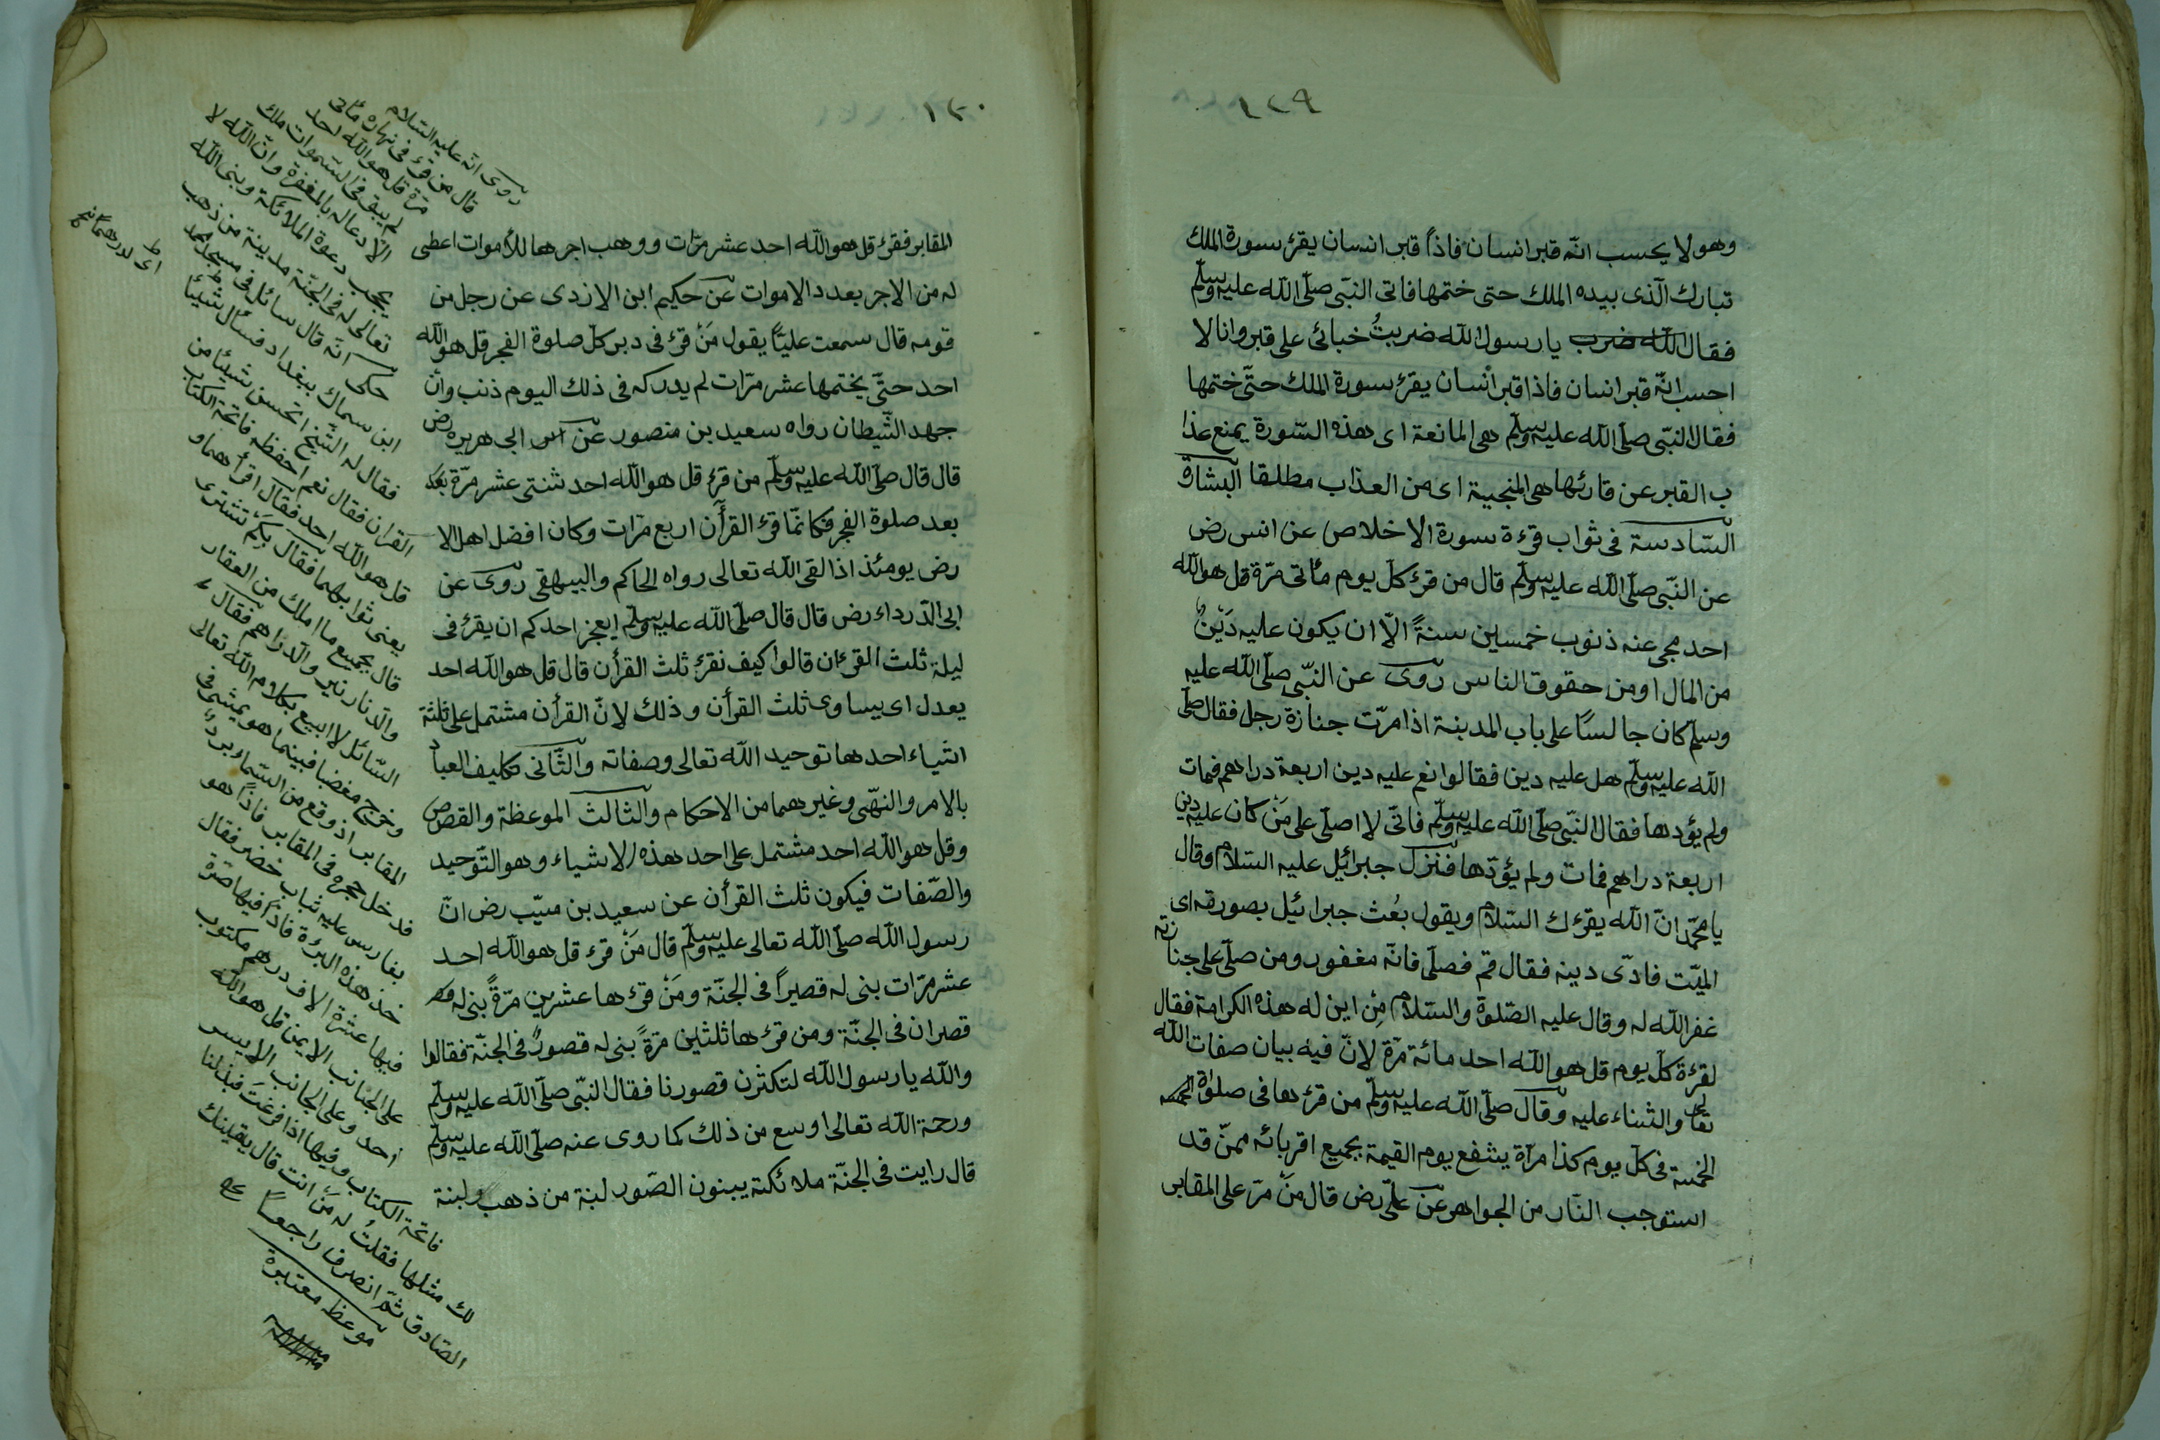 ١٢٩
وهو لا يحسب انّه قبر انسان فاذاً قبر انسان يقرئ سورة الملك
تبارك الّذى بيده الملك حتى ختمها فاتى النبّى صلّى اللّه عليه وسلّم
فقال اللّه ضرب يا رسول اللّه ضربتُ خبائى على قبر وانا لا
احسب انّه قبر انسان فاذا قبر انسان يقرئ سورة الملك حتّى ختمها
فقال النبّى صلّى اللّه عليه وسلّم هى المانعة اى هذه السّورة يمنع عذا
ب القبر عن قارئها هى المنجية اى من العذاب مطلقا البشارة
السّادسة فى ثواب قرءة سورة الاخلاص عن انس رض
عن النبّى صلّى اللّه عليه وسلّم قال من قرئ كلّ يوم مأتى مرّة قل هو اللّه
احد محى عنه ذنوب خمسين سنةً الاّ ان يكون عليه دَيْنٌ
من المال او من حقوق الناس روى عن النبّى صلّى اللّه عليه
وسلّم كان جالسًا على باب المدينة اذا مرّت جنازة رجل فقال صلّى
اللّه عليه وسلّم هل عليه دين فقالوا نعم عليه دين اربعة دراهم فمات
ولم يؤدها فقال النبّى صلّى اللّه عليه وسلّم فانّى لا اصلّى على مَنْ كان عليه دين
اربعة دراهم فمات ولم يؤدّها فنزل جبرائيل عليه السّلام وقال
يا محمّد انّ اللّه يقرءك السّلام ويقول بُعث جبرائيل بصورته اى
الميّت فادّى دينه فقال قم فصلّى فانّه مغفور ومن صلّى على جنازته
غفر اللّه له وقال عليه الصّلوة والسّلام مِن اين له هذه الكرامة فقال
لقرءة كلّ يوم قل هو اللّه احد مائة مرّة لانّ فيه بيان صفات اللّه
تعالى والثناء عليه وقال صلّى اللّه عليه وسلّم من قرءها فى صلوة
الخمسة فى كلّ يوم كذا مرّة يشفع يوم القيمة بجميع اقربائه ممنّ قد
استوجب النّار من الجواهر عن علّى رض قال مَنْ مرّ على المقابر
١٣٠
المقابر فقرئ قل هو اللّه احد عشر مرّات ووهب اجرها للأموات اعطى
له من الاجر بعدد الاموات عن حكيم ابن الازدى عن رجل من
قومه قال سمعت عليّاً يقول مَنْ قرئ فى دبر كلّ صلوة الفجر قل هو اللّه
احد حتّى يختمها عشر مرّات لم يدركه فى ذلك اليوم ذنب وان
جهد الشّيطان رواه سعيد بن منصور عن ابى هريره رض
قال قال صلّى اللّه عليه وسلّم من قرئ قل هو اللّه احد ثنتى عشر مرّة
بعد صلوة الفجر فكانمّا قرئ القرأن اربع مرّات وكان افضل اهل الا
رض يومئذ اذا لقى اللّه تعالى رواه الحاكم والبيهقى روى عن
ابى الدّرداء رض قال قال صلّى اللّه عليه وسلّم ايعجز احدكم ان يقرئ فى
ليلة ثلث القرءان قالوا كيف نقرئ ثلث القرأن قال قل هو اللّه احد
يعدل اى يساوى ثلث القرأن وذلك لانّ القرأن مشتمل على ثلثة
اشياء احدها توحيد اللّه تعالى وصفاته والثّانى تكليف العباد
بالامر والنهّى وغيرهما من الاحكام والثالث الموعظة والقصص
وقل هو اللّه احد مشتمل على احد هذه الاشياء وهو التّوحيد
والصّفات فيكون ثلث القرأن عن سعيد بن مسيّب رض انّ
رسول اللّه صلّى اللّه تعالى عليه وسلّم قال مَنْ قرئ قل هو اللّه احد
عشر مرّات بنى له قصيراً فى الجنّة ومَنْ قرءها عشرين مرّةً بنى له
قصران فى الجنّة ومن قرءها ثلثين مرّةً بنى له قصورٌ فى الجنّة فقالوا
واللّه يا رسول اللّه لتكثرن قصورنا فقال النبّى صلّى اللّه عليه وسلّم
ورحمة اللّه تعالى اوسع من ذلك كما روى عنه صلّى اللّه عليه وسلّم
قال رايت فى الجنّة ملائكة يبنون الصّور لبنة من ذهب ولبنة
روى انّه عليه السّلام
قال من قرئ فى نهاره مأتى
مرّة قل هو اللّه احد
لم يبق فى السّموات ملك
الاّ دعا له بالمغفرة وانّ اللّه لا
يحجب دعوة الملائكة وبنى اللّه
تعالى له فى الجنّة مدينة من ذهب
حكى انّه قال سائل فى مسجد
ابن سماك ببغداد فسأل شيئًا
فقال له الشّيخ اتحسن شيئا من
القران فقال نعم احفظ فاتحة الكتاب
قل هو اللّه احد فقال اقرأهما و
يعنى ثوابهما فقال بكم تشترى
قال بجميع ما املك من العقار
والدّنانير والدّراهم فقال
السّائل لا ابيع بكلام اللّه تعالى
وخرج مغضبا فبينما هو يمشى فى
المقابر اذ وقع من السّماء برد
قد خل حجره فى المقابر فاذاً هو
بفارس عليه ثياب خضر فقال
خذ هذه البرءة فاذاً فيها صرّة
فيها عشرة الاف درهم مكتوب
على الجانب الايمن قل هو اللّه
احد وعلى الجانب الايسر
فاتحة الكتاب وفيها اذا فرغت فبذلنا
لك مثلها فقلت له مَنْ انت قال يقينك
الصّادق ثمّ انصرف راجعاً
موعظه معتبرة